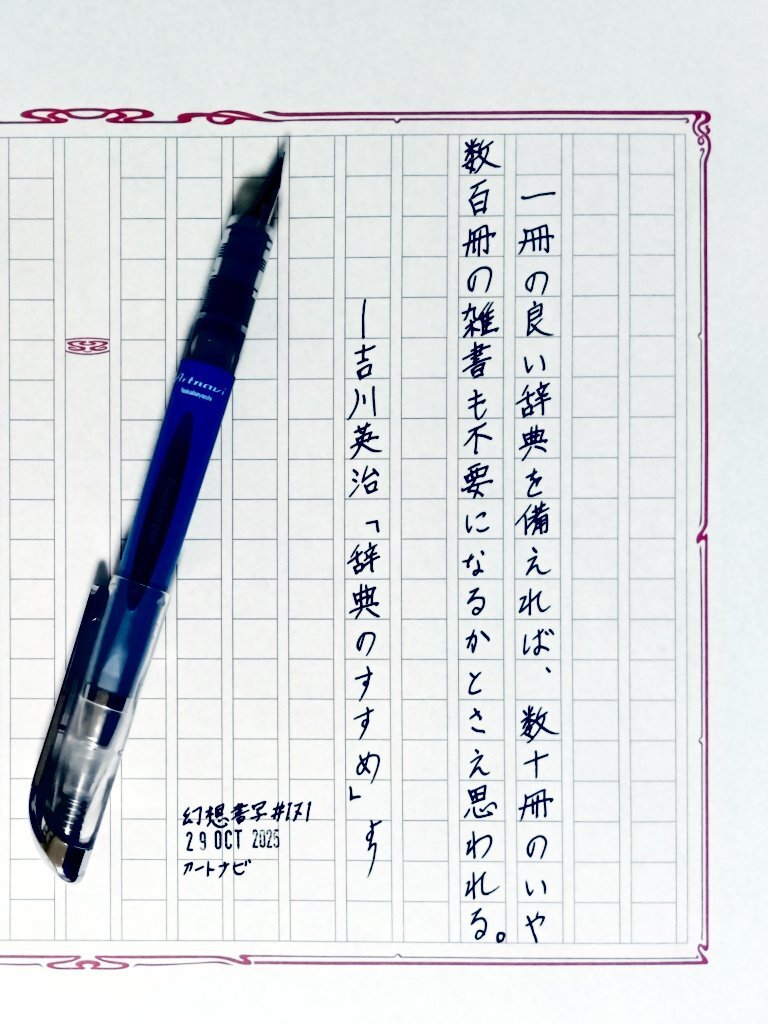 一冊の良い辞典を備えれば、数十冊のいや
数百冊の雑書も不要になるかとさえ思われる。
―吉川英治「辞典のすすめ」より
幻想書写#171
29 OCT 2025
アートナビ
Artnavi
Nakabayashi